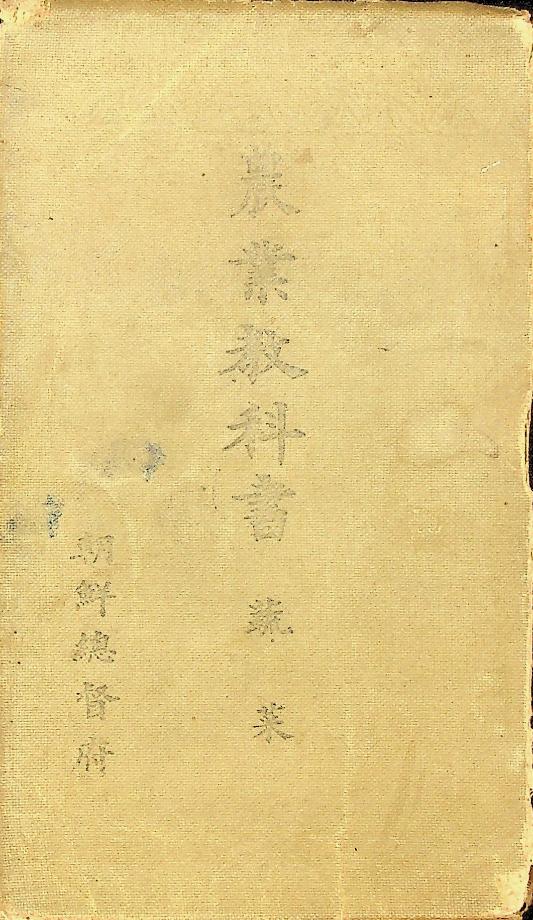 農業教科書 蔬菜
朝鮮總督府